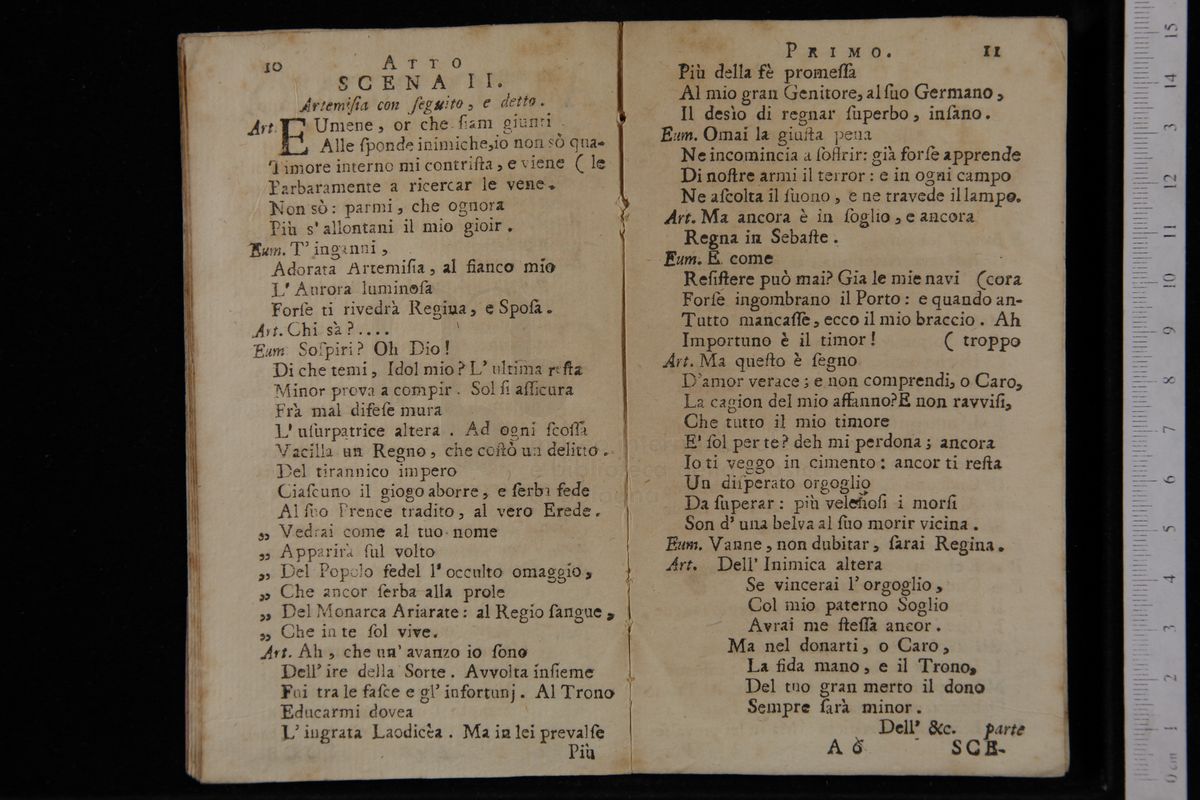 10 ATTO
SCENA II.
Artemiſia con ſeguito, e detto.
Art. EUmene, or che ſiam giunti
Alle ſponde inimiche, io non sò qua-
Timore interno mi contriſta, e viene ( le
Barbaramente a ricercar le vene.
Non sò: parmi, che ognora
Più s' allontani il mio gioir.
Eum. T' inganni,
Adorata Artemiſia, al fianco mio
L' Aurora luminoſa
Forſe ti rivedrà Regina, e Spoſa.
Art. Chi sà?....
Eum Soſpiri? Oh Dio!
Di che temi, Idol mio? L' ultima reſta
Minor prova a compir. Sol ſi aſſicura
Frà mal difeſe mura
L' uſurpatrice altera. Ad ogni ſcoſſa
Vacilla un Regno, che coſtò un delitto.
Del tirannico impero
Ciaſcuno il giogo aborre, e ſerba fede
Al ſuo Prence tradito, al vero Erede.
„ Vedrai come al tuo nome
„ Apparirà ſul volto
„ Del Popolo fedel l' occulto omaggio,
„ Che ancor ſerba alla prole
„ Del Monarca Ariarate: al Regio ſangue,
„ Che in te ſol vive.
Art. Ah, che un' avanzo io ſono
Dell' ire della Sorte. Avvolta inſieme
Fui tra le faſce e gl' infortunj. Al Trono
Educarmi dovea
L' ingrata Laodicèa. Ma in lei prevalſe
Più
PRIMO. 11
Più della fè promeſſa
Al mio gran Genitore, al ſuo Germano,
Il desìo di regnar ſuperbo, inſano.
Eum. Omai la giuſta pena
Ne incomincia a ſoffrir: già forſe apprende
Di noſtre armi il terror: e in ogni campo
Ne aſcolta il ſuono, e ne travede il lampo.
Art. Ma ancora è in ſoglio, e ancora
Regna in Sebaſte.
Eum. E come
Reſiſtere può mai? Gia le mie navi (cora
Forſe ingombrano il Porto: e quando an-
Tutto mancaſſe, ecco il mio braccio. Ah
Importuno è il timor! ( troppo
Art. Ma queſto è ſegno
D'amor verace; e non comprendi, o Caro,
La cagion del mio affanno? E non ravviſi,
Che tutto il mio timore
E' ſol per te? deh mi perdona; ancora
Io ti veggo in cimento: ancor ti reſta
Un diſperato orgoglio
Da ſuperar: più velenoſi i morſi
Son d' una belva al ſuo morir vicina.
Eum. Vanne, non dubitar, ſarai Regina.
Art. Dell' Inimica altera
Se vincerai l' orgoglio,
Col mio paterno Soglio
Avrai me ſteſſa ancor.
Ma nel donarti, o Caro,
La fida mano, e il Trono,
Del tuo gran merto il dono
Sempre ſarà minor.
Dell' &c. parte
A 6 SCE-